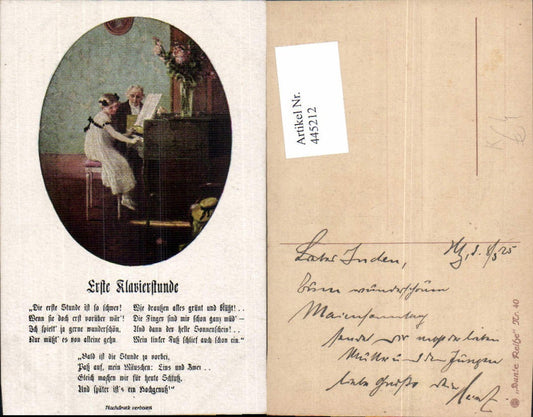 Erste Klavierstunde
„Die erste Stunde ist so schwer!
Wenn sie doch erst vorüber wär'!
Ich spielt' ja gerne wunderschön,
Nur müßt' es von alleine gehn.
Wie draußen alles grünt und blüht!..
Die Finger sind mir schon ganz müd'...
Und dann der helle Sonnenschein!..
Mein linker Fuß schlief auch schon ein."
„Bald ist die Stunde zu vorbei,
Paß auf, mein Mäuschen: Eins und Zwei..
Gleich machen wir für heute Schluß,
Und später ist's ein Hochgenuß!"
Nachdruck verboten
Artikel Nr.
445212
25
Maiensonntag
sendet Dir
Mutter und den Jungen
liebe Grüße
„Bunte Reihe" Nr. 40